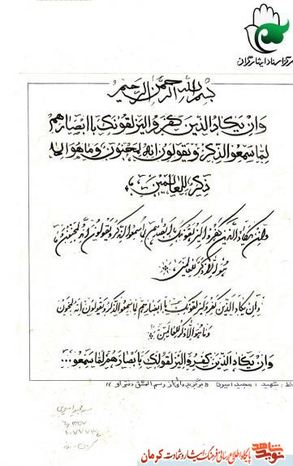 مرکز اسناد ایثارگران
بسم الله الرحمن الرحیم
وان یکاد الذین کفروا لیزلقونک بابصارهم
لما سمعوا الذکر و یقولون انه لمجنون و ما هو الا
ذکر للعالمین
وان یکاد الذین کفروا لیزلقونک بابصارهم لما سمعوا الذکر و یقولون انه لمجنون
و ما هو الا ذکر للعالمین
وان یکاد الذین کفروا لیزلقونک بابصارهم لما سمعوا الذکر و یقولون انه لمجنون
و ما هو الا ذکر للعالمین
وان یکاد الذین کفروا لیزلقونک بابصارهم لما سمعوا...
خط: شهید: مجید
نوید شاهد
پایگاه اطلاع رسانی فرهنگ ایثار و شهادت کرمان